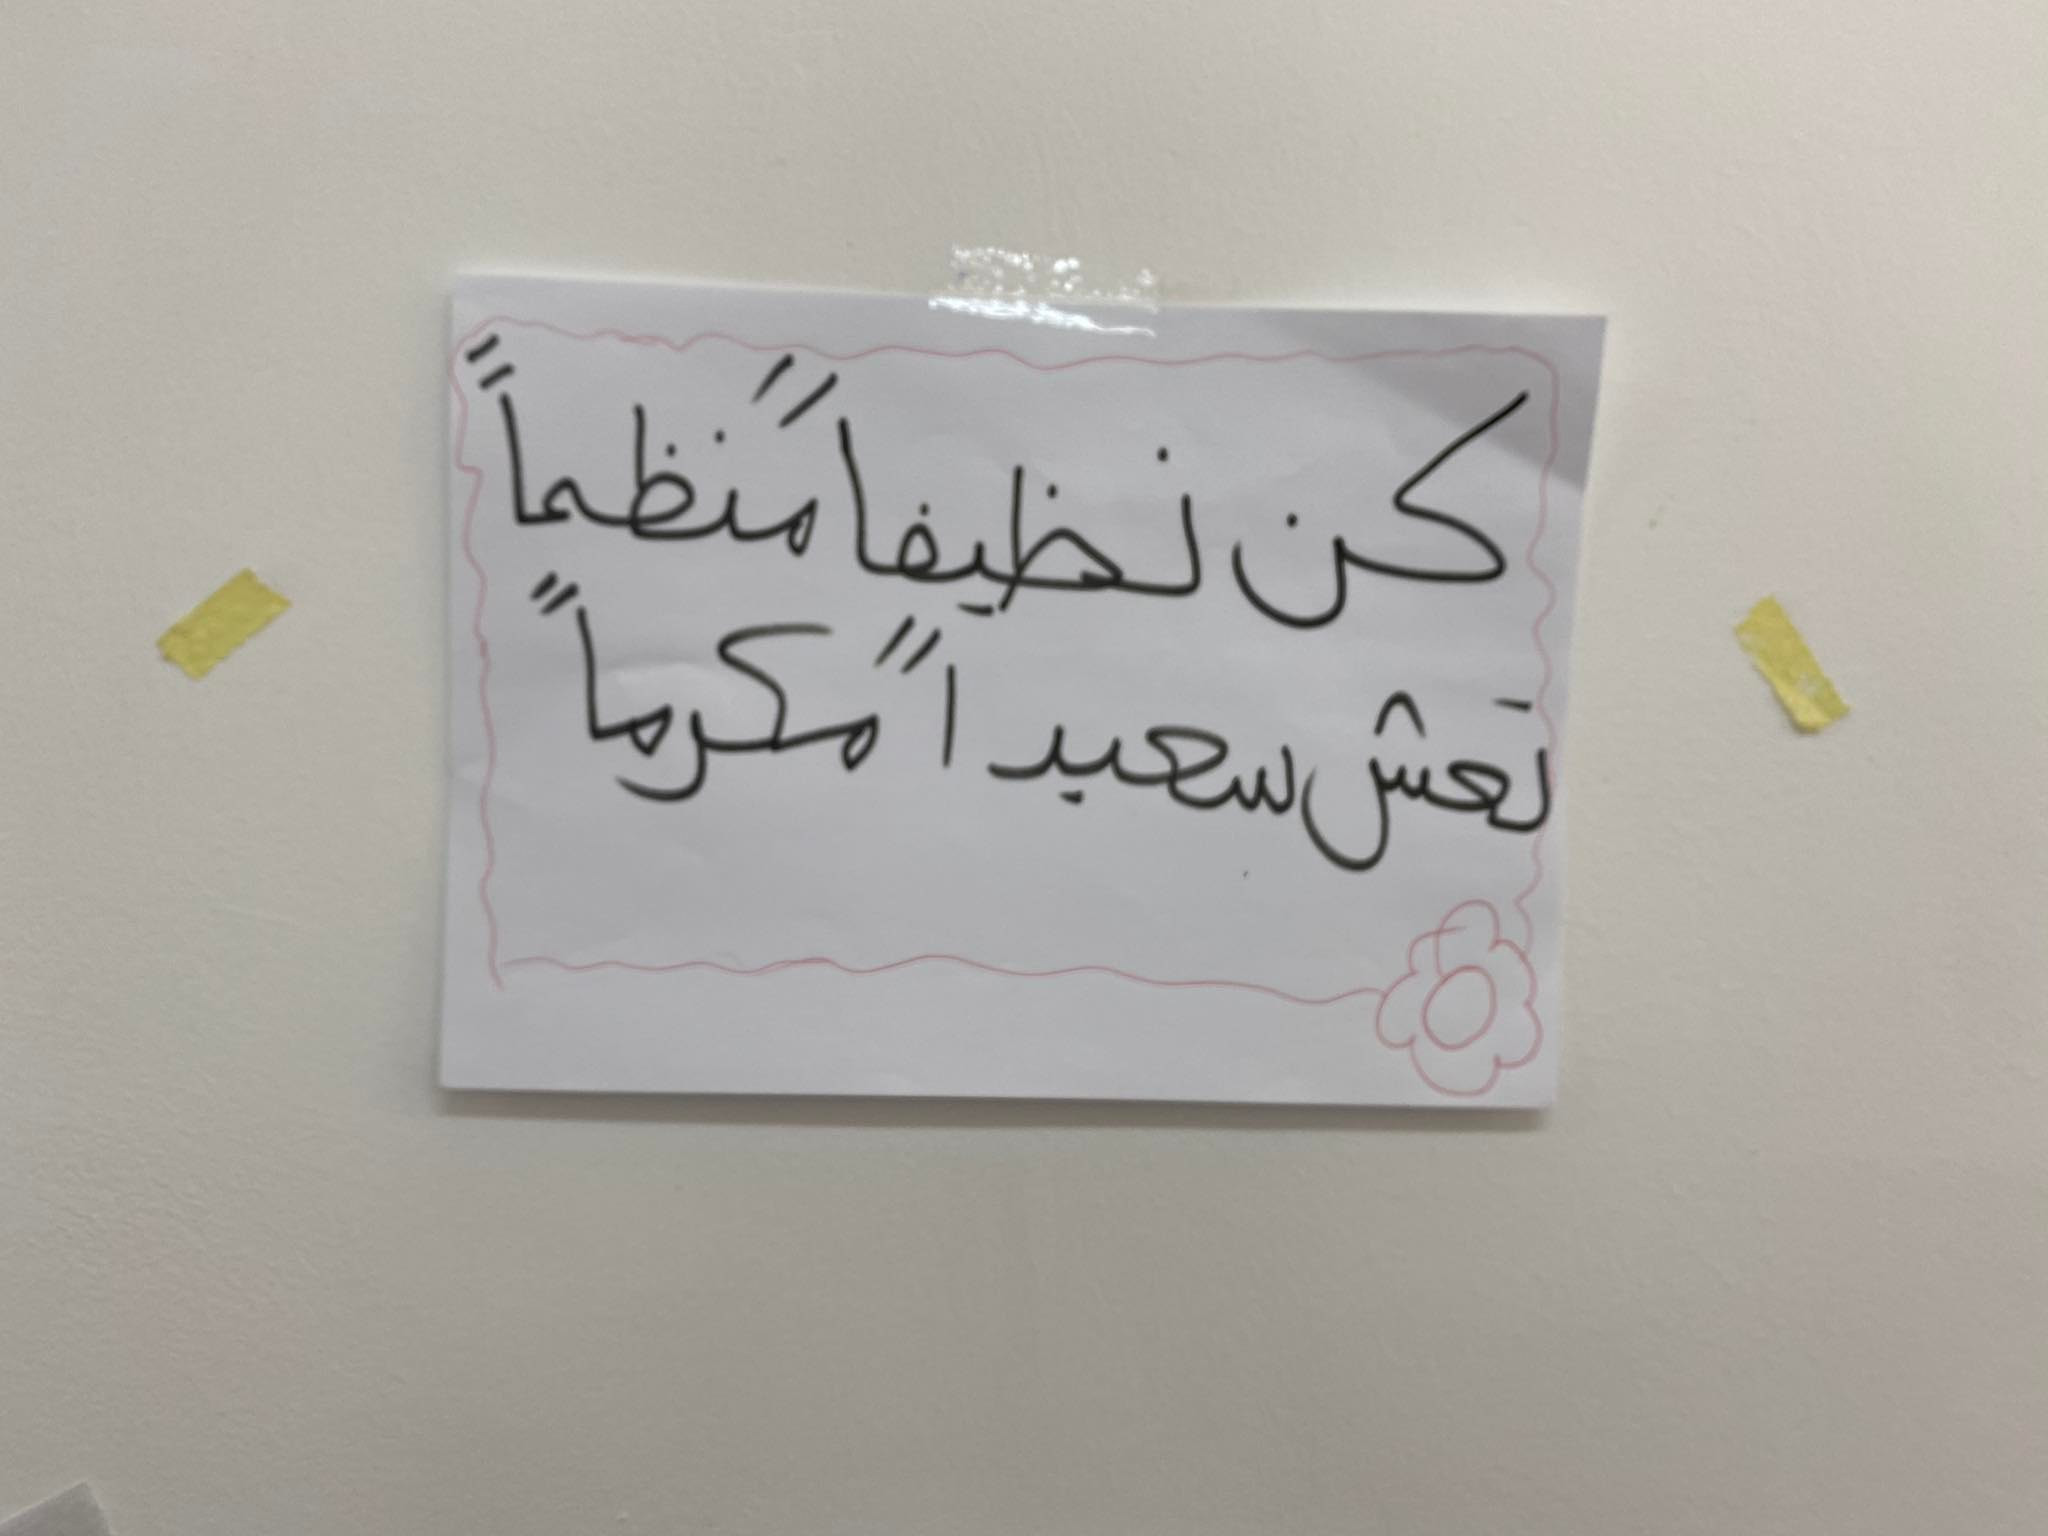 كن نظيفاً منظماً
تعش سعيداً مكرماً